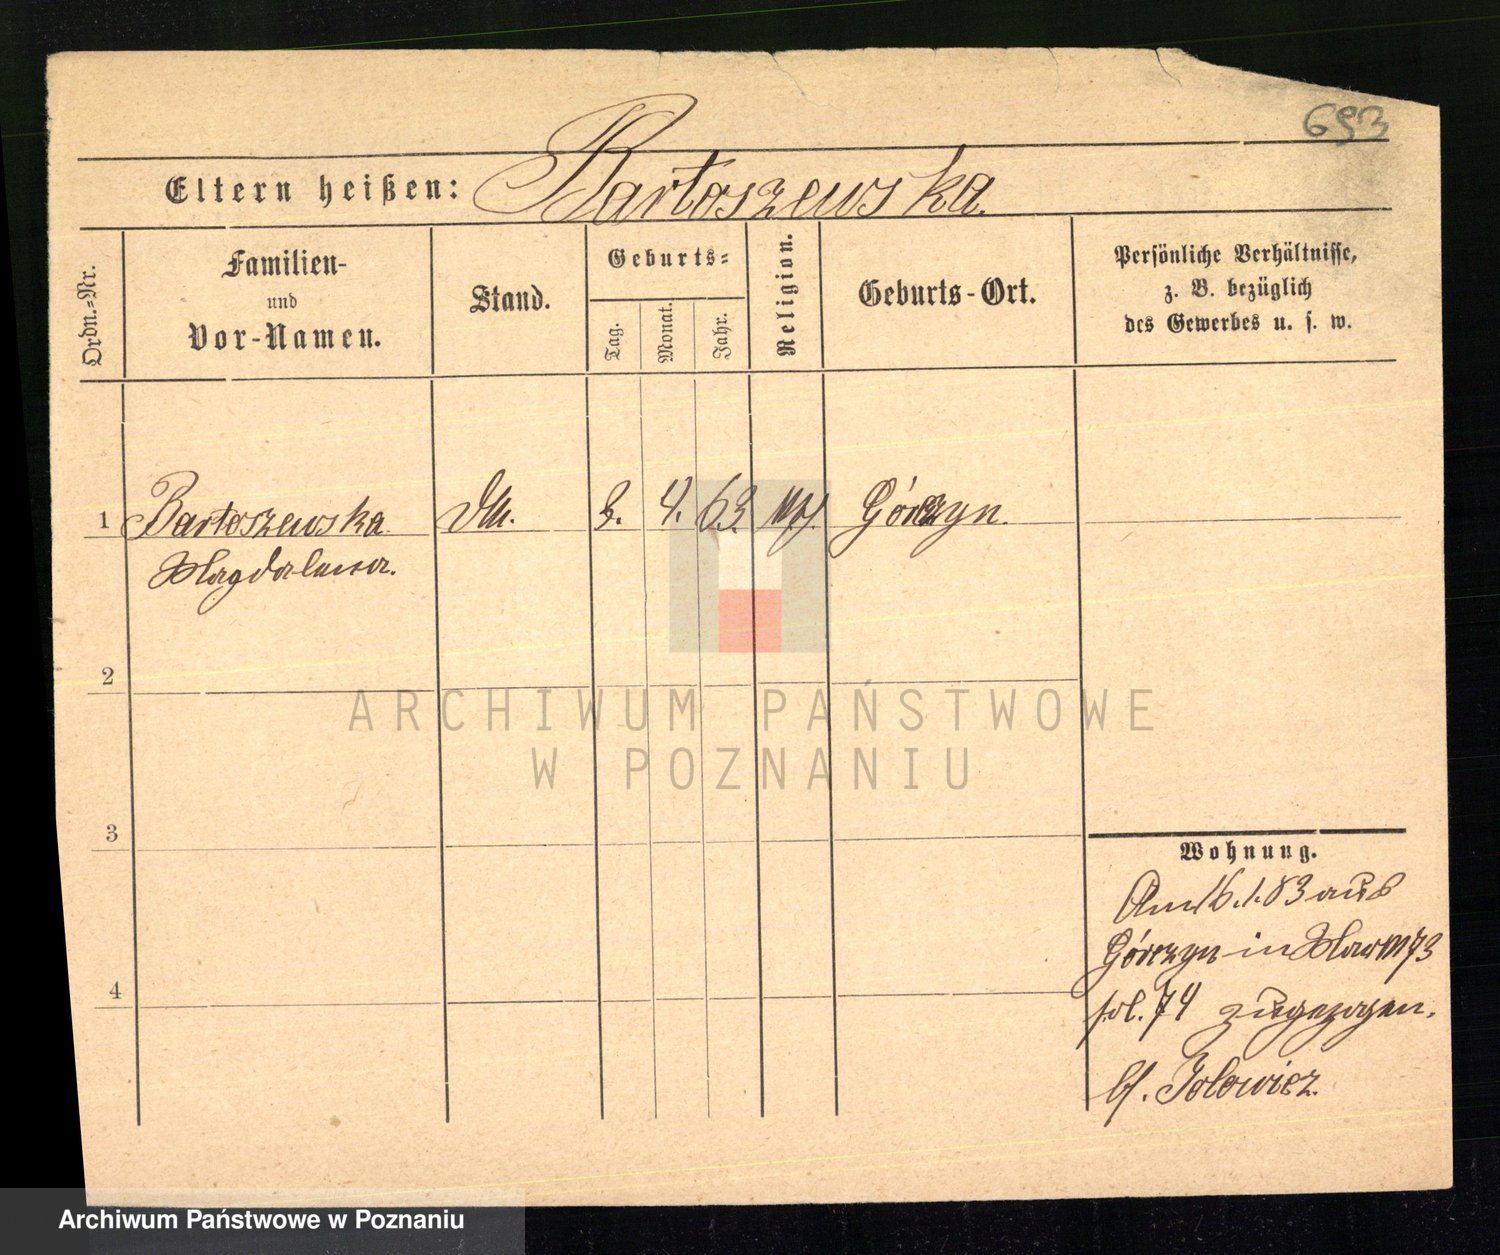 693
Eltern heißen: Bartoszewska.
Ordn.-Nr.
Familien-
und
Vor-Namen.
Stand.
Geburts-
Tag.
Monat.
Jahr.
Religion.
Geburts-Ort.
Persönliche Verhältnisse,
z. B. bezüglich
des Gewerbes u. s. w.
1 Bartoszewska 4. 63 Górczyn.
Magdalena.
2
3
4
Wohnung.
Am 16.1.83 aus
Górczyn in 73
fol. 74 zugezogen.
bf. Jolowicz.
ARCHIWUM PAŃSTWOWE
W POZNANIU
Archiwum Państwowe w Poznaniu